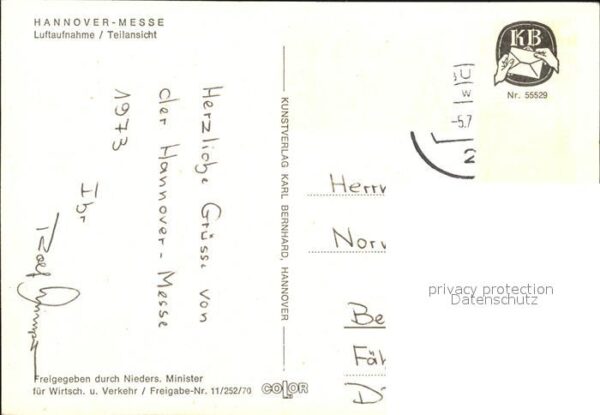 HANNOVER-MESSE
Luftaufnahme / Teilansicht
Herzliche Grüsse von
der Hannover-Messe
1973
Ihr
Rolf
KUNSTVERLAG KARL BERNHARD, HANNOVER
KB
Nr. 55529
-5.7
2
Herrn
Nor
Be
Fäh
D
privacy protection
Datenschutz
Freigegeben durch Nieders. Minister
für Wirtsch. u. Verkehr / Freigabe-Nr. 11/252/70
COLOR